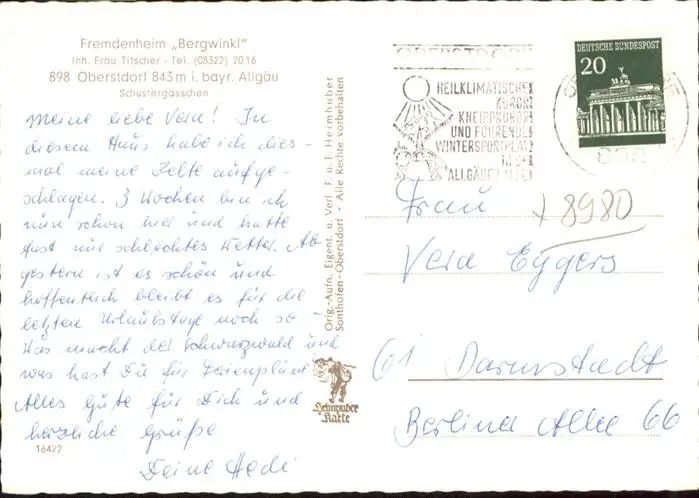 Fremdenheim „Bergwinkl"
Inh. Frau Titscher - Tel. (08322) 20 16
898 Oberstdorf 843 m i. bayr. Allgäu
Schustergässchen
Meine liebe Vera! In
diesem Haus habe ich dies-
mal meine Zelte aufge-
schlagen. 3 Wochen bin ich
nun schon hier und hatte
fast nur schlechtes Wetter. Ab
gestern ist es schön und
hoffentlich bleibt es für die
letzten Urlaubstage noch so.-
Was macht der Schwarzwald und
was hast Du für Ferienpläne
Alles Gute für Dich und
herzliche Grüße
Deine Hedi
16422
Orig.-Aufn. Eigent. u. Verl. F. u. E. Heimhuber
Sonthofen-Oberstdorf - Alle Rechte vorbehalten
Heimhuber
Karte
OBERSTDORF
HEILKLIMATISCHER
KURORT
KNEIPPKURORT
UND FÜHRENDER
WINTERSPORTPLATZ
IN DEN
ALLGÄUER ALPEN
DEUTSCHE BUNDESPOST
20
898
Frau
8980
Vera Eggers
61 Darmstadt
Berliner Allee 66